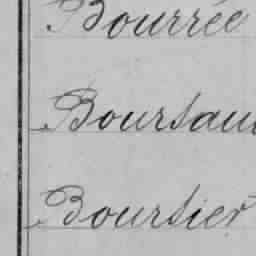 Bourrée
Boursau
Boursier